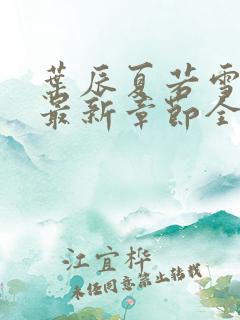 葉辰夏若雪
最新章節全
江宜桦
未经同意禁止转载